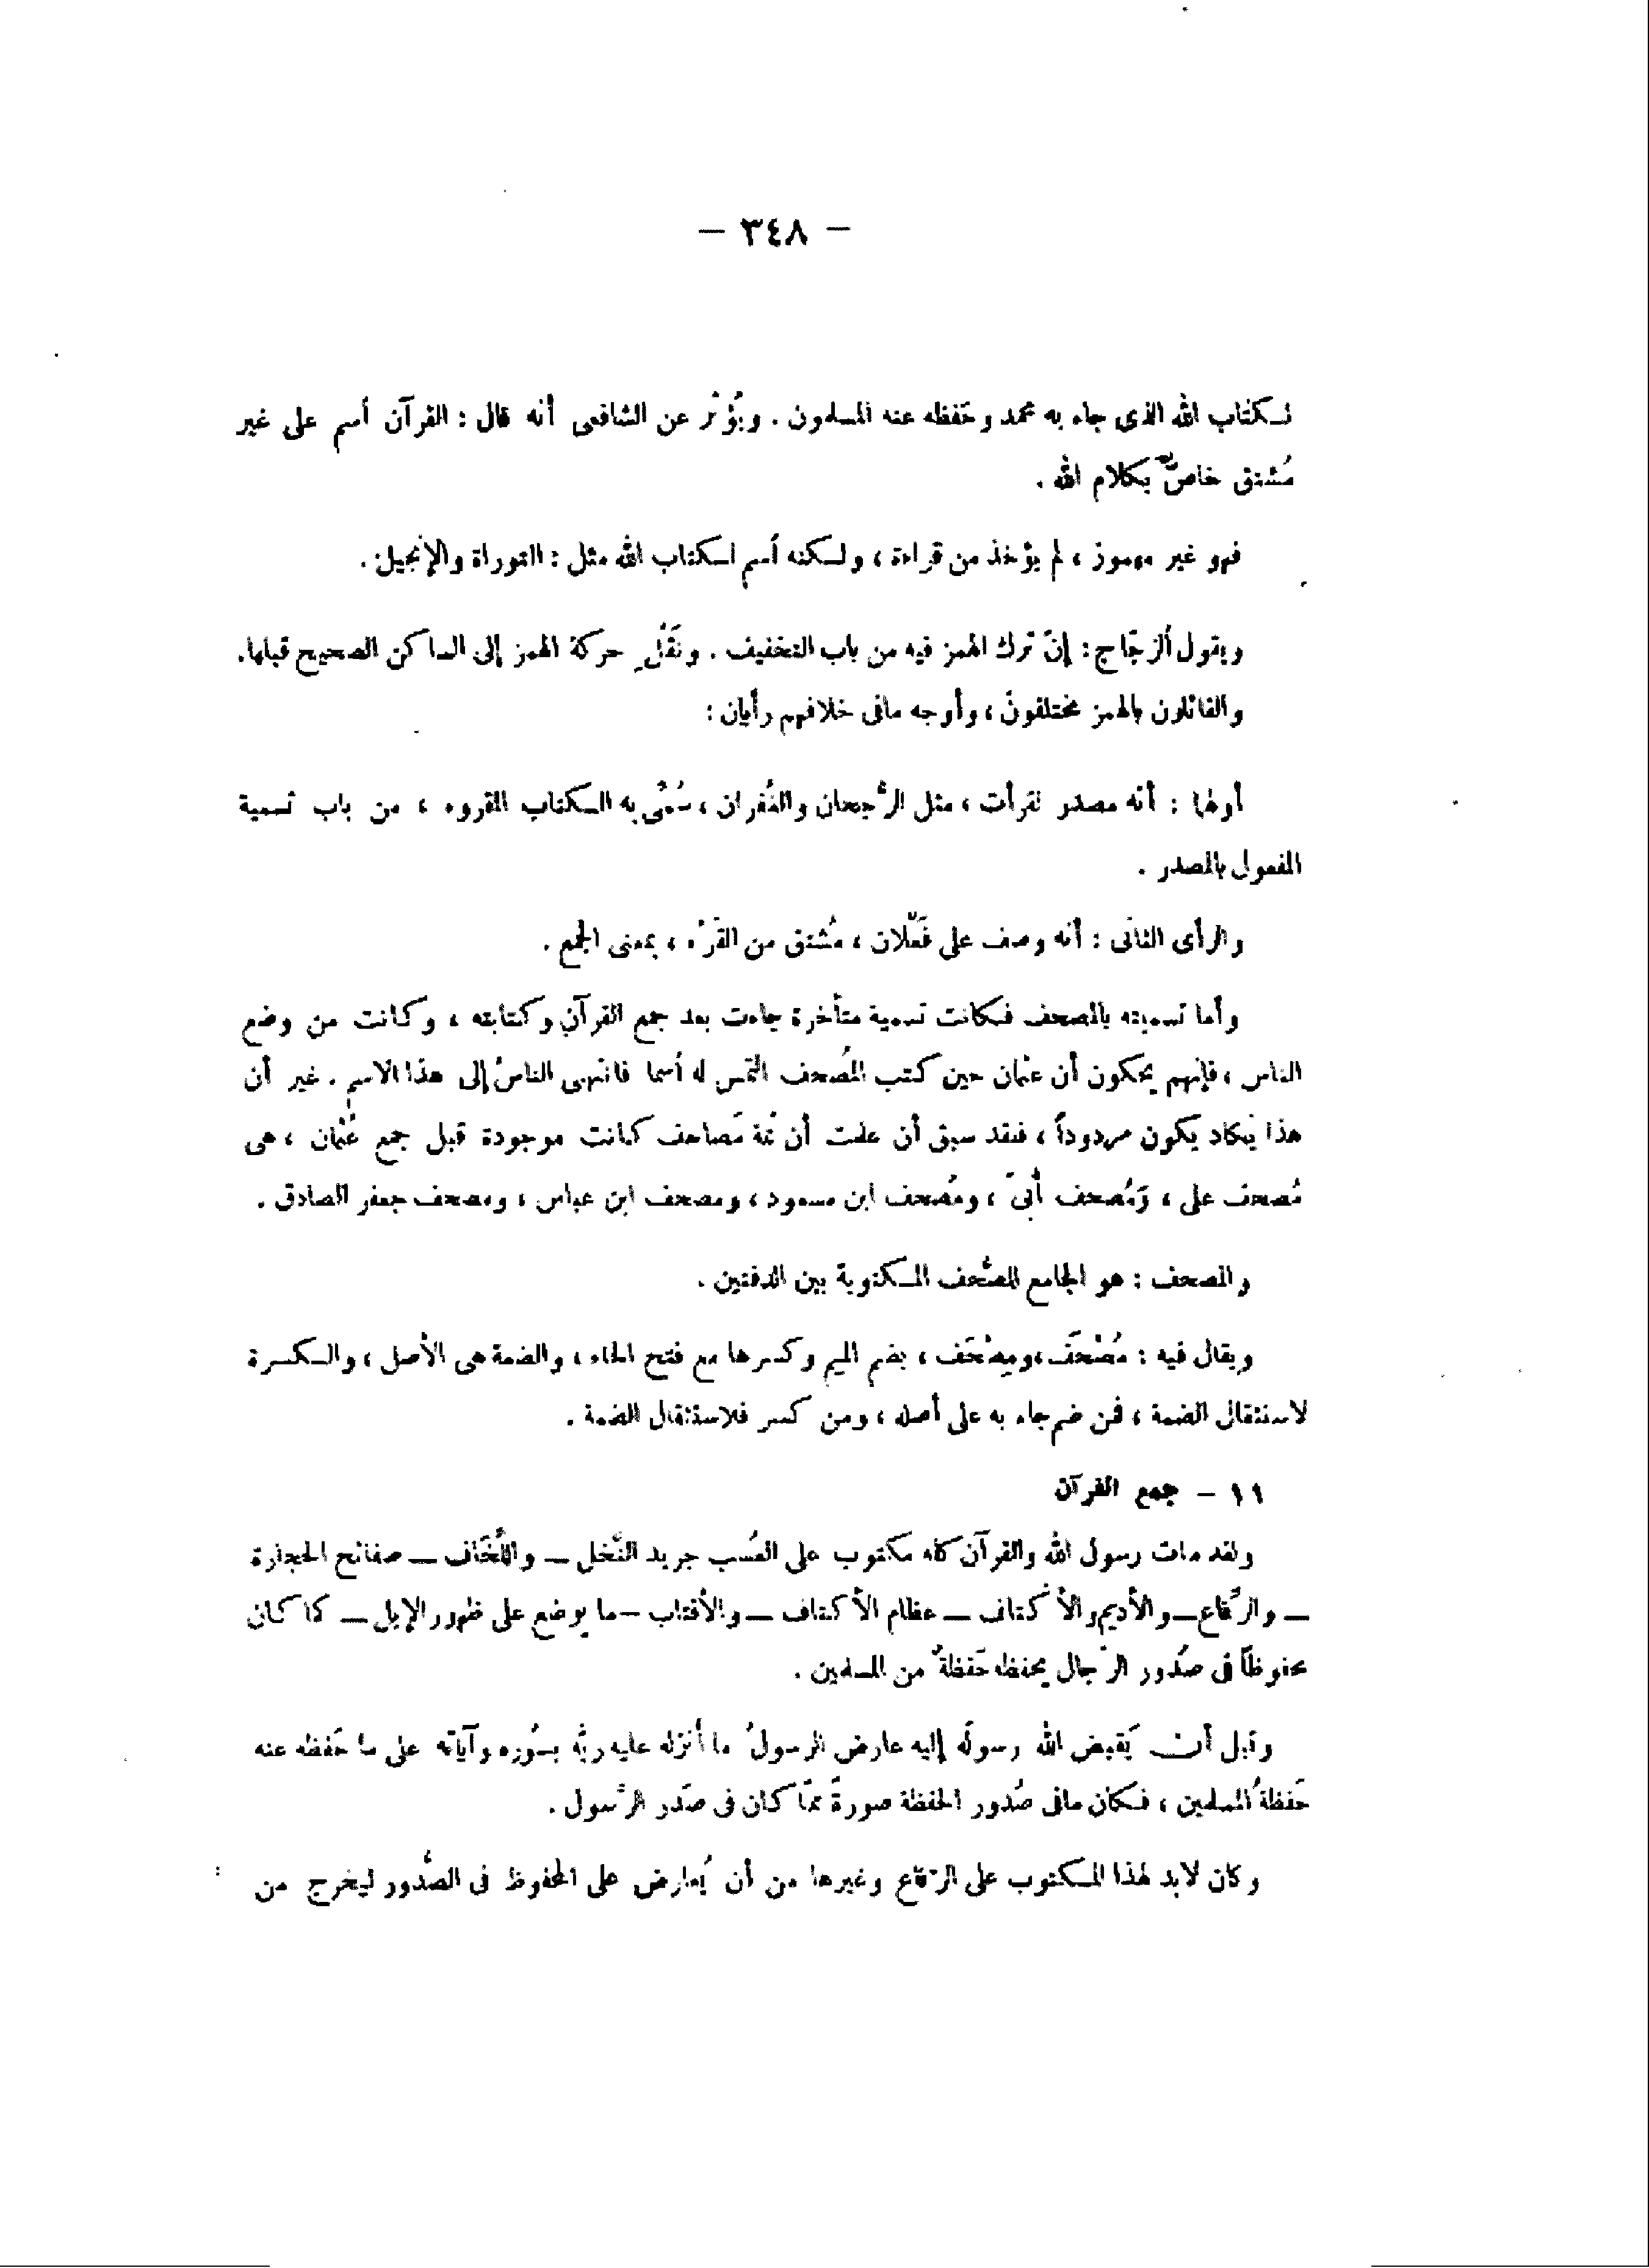 — ٣٤٨ —
لكتاب الله الذى جاء به محمد وحَفظه عنه المسلمون . ويُؤثر عن الشافعى أنه قال : القرآن أسم على غير
مُشتق خاصٌّ بكلام الله .
فهو غير مهموز ، لم يؤخذ من قراءة ، ولكنه أسم لكتاب الله مثل : التوراة والإنجيل .
ويقول ألزجّاج : إنّ ترك الهمز فيه من باب التخفيف . ونَقْلِ حركة الهمز إلى الساكن الصحيح قبلها .
والقائلون بالهمز مختلفون ، وأوجه مافى خلافهم رأيان :
أولهما : أنه مصدر لقرأت ، مثل الرُّجحان والغُفران ، سُمّى به الكتاب المقروء ، من باب تسمية
المفعول بالمصدر .
والرأى الثانى : أنه وصف على فَعْلان ، مُشتق من القَرْء ، بمعنى الجمع .
وأما تسميته بالمصحف فكانت تسمية متأخرة جاءت بعد جمع القرآن وكتابته ، وكانت من وضع
الناس ، فإنهم يحكون أن عثمان حين كتب المُصحف التمس له أسما فانتهى الناسُ إلى هذا الاسم . غير أن
هذا يكاد يكون مردوداً ، فقد سبق أن علمت أن ثمة مَصاحف كانت موجودة قبل جمع عُثمان ، هى
مُصحف على ، ومُصحف أُبىّ ، ومُصحف ابن مسعود ، ومصحف ابن عباس ، ومصحف جعفر الصادق .
والمصحف : هو الجامع للصُّحف المكتوبة بين الدفتين .
ويقال فيه : مُصْحَف ، ومِصْحَف ، بضم الميم وكسرها مع فتح الحاء ، والضمة هى الأصل ، والكسرة
لاستثقال الضمة ، فمن ضم جاء به على أصله ، ومن كسر فلاستثقال الضمة .
١١ — جمع القرآن
ولقد مات رسول الله والقرآن كله مكتوب على العُسب جريد النَّخل — واللِّخَاف — صفائح الحجارة
— والرِّقاع — والأديم والأكتاف — عظام الأكتاف — والأقتاب — ما يوضع على ظهور الإبل — كما كان
محفوظاً فى صُدور الرّجال يحفظه حَفظةٌ من المسلمين .
وقبل أن يَقبض الله رسولَه إليه عارض الرسولُ ما أنزله عليه ربُّه بسُوره وآياته على ما حَفظه عنه
حَفظةُ المسلمين ، فكان مافى صُدور الحفظة صورةً ممّا كان فى صَدر الرَّسول .
وكان لابد لهذا المكتوب على الرّقاع وغيرها من أن يُعارض على المحفوظ فى الصُّدور ليخرج من